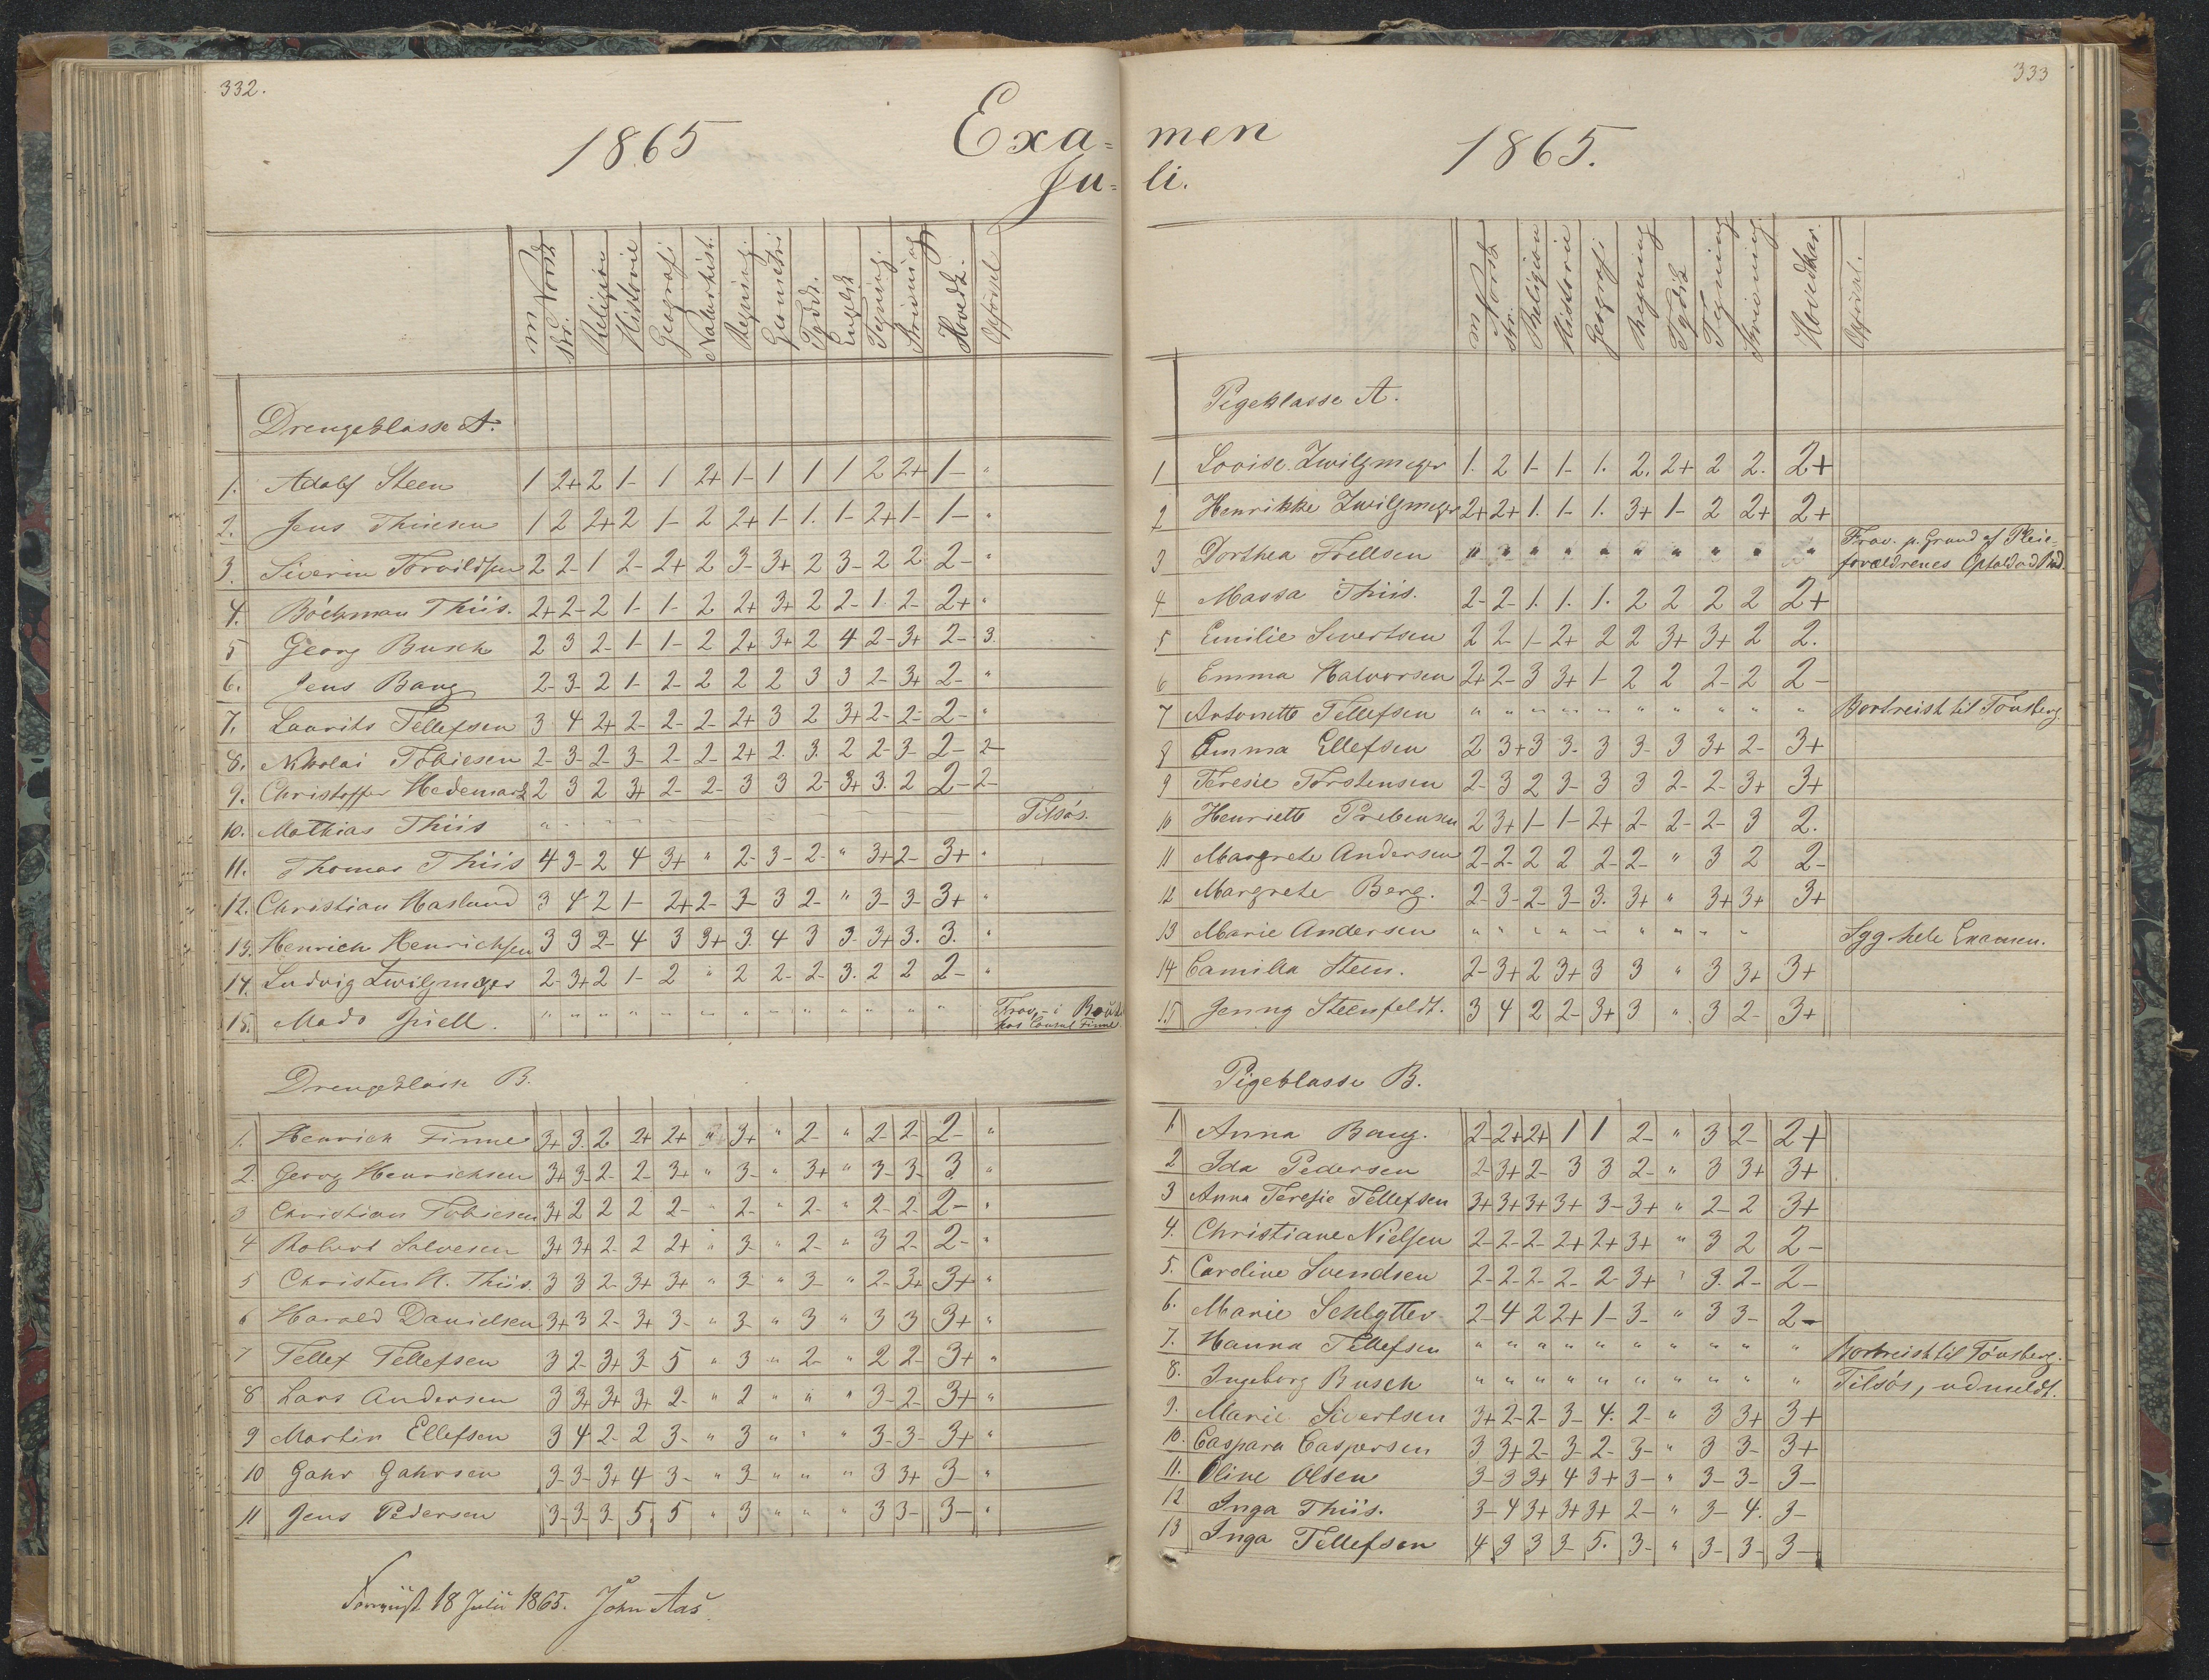 332.
1865
Exa-
Ju-
M. Norsk
Skr.
Religion
Historie
Geografi
Naturhist.
Regning
Geometri
Tydsk.
Engelsk
Tegning
Skrivning
Hovedk.
Opførsel
Drengeklasse A.
1. Adolf Steen 1 2+ 2 1- 1 2+ 1- 1 1 1 2 2+ 1- "
2. Jens Thiisen 1 2 2+ 2 1- 2 2+ 1- 1. 1- 2+ 1- 1- "
3. Siverin Torvildsen 2 2- 1 2- 2+ 2 3- 3+ 2 3- 2 2 2- "
4. Böckman Thiis. 2+ 2- 2 1- 1- 2 2+ 3+ 2 2- 1 2- 2+ "
5 Georg Busch 2 3 2- 1- 1- 2 2+ 3+ 2 4 2- 3+ 2- 3.
6. Jens Bang 2- 3- 2 1- 2- 2 2 2 3 3 2- 3+ 2- "
7. Laurits Tellefsen 3 4 2+ 2- 2- 2- 2+ 3 2 3+ 2- 2- 2- "
8. Nikolai Tobiesen 2- 3- 2- 3- 2- 2- 2+ 2. 3. 2 2- 3- 2- 2-
9. Christoffer Hedemark 2 3 2 3+ 2- 2- 3 3 2- 3+ 3. 2 2- 2-
10. Mathias Thiis " - - - - - - - - - - - Tilsøs.
11. Thomas Thiis 4 3- 2 4 3+ " 2- 3- 2- " 3+ 2- 3+ "
12. Christian Haslund 3 4 2 1- 2+ 2- 3- 3 2- " 3- 3- 3+ "
13. Henrich Henrichsen 3 3 2- 4 3 3+ 3. 4 3 3. 3+ 3. 3. "
14. Ludvig Zwilgmeyer 2- 3+ 2 1- 2 " 2 2- 2- 3. 2 2 2- "
15. Mads Gjell. " " " " " " " " " " " " " Frav. - i Besøk
hos Consul Finne.
Drengeklasse B.
1. Henrich Finne 3+ 3. 2 2+ 2+ " 3+ " 2- " 2- 2- 2- "
2. Georg Henrichsen 3+ 3- 2- 2- 3+ " 3- " 3+ " 3- 3- 3 "
3 Christian Tobiesen 3+ 2 2 2 2- " 2- " 2- " 2- 2- 2- "
4 Robert Salvesen 3+ 3+ 2- 2 2+ " 3- " 2- " 3 2- 2- "
5 Christen H. Thiis. 3 3 2- 3+ 3+ " 3- " 3- " 2- 3+ 3+ "
6 Harald Danielsen 3+ 3 2- 3+ 3- " 3- " 3 " 3 3 3+ "
7 Tellef Tellefsen 3 2- 3+ 3- 5 " 3 " 2- " 2 2- 3+ "
8 Lars Andersen 3 3+ 3+ 3+ 2- " 2 " " " 3- 2- 3+ "
9 Martin Ellefsen 3 4 2- 2 3- " 3 " " " 3- 3- 3+ "
10 Gahr Gahrsen 3- 3- 3+ 4 3- " 3- " " " 3 3+ 3- "
11 Jens Pedersen 3- 3- 3- 5. 5 " 3 " " " 3 3- 3- "
18 Juli 1865. John Aas
333
men
1865.
li.
M. Norsk
Skr.
Religion
Historie
Geografi
Regning
Tydsk
Tegning
Skrivning
Hovedkar.
Opførsel.
Pigeklasse A.
1 Lovise Zwilgmeyer 1. 2 1- 1- 1. 2. 2+ 2 2. 2+
2 Henrikke Zwilgmeyer 2+ 2+ 1. 1- 1. 3+ 1- 2 2+ 2+
3 Dorthea Frellsen " " " " " " " " " " Frav. p. Grund af Pleie-
forældrenes Ophold ved Bad.
4 Massa Thiis. 2- 2- 1. 1. 1. 2 2 2 2 2+
5 Emilie Sivertsen 2 2- 1- 2+ 2 2 3+ 3+ 2 2.
6 Emma Halvorsen 2+ 2- 3 3+ 1- 2 2 2- 2 2-
7 Antonette Tellefsen " " " " " " " " " " Bortreist til Tönsberg.
8 Emma Ellefsen 2 3+ 3 3- 3 3- 3 3+ 2- 3+
9 Teresie Torstensen 2- 3 2 3- 3 3 2- 2- 3+ 3+
10 Henriette Prebensen 2 3+ 1- 1- 2+ 2- 2- 2- 3 2.
11 Margrete Andersen 2- 2- 2 2 2- 2- " 3 2 2-
12 Margrete Berg. 2- 3- 2- 3- 3. 3+ " 3+ 3+ 3+
13 Marie Andersen " " " " " " " " " Syg hele Examen.
14 Camilla Steen. 2- 3+ 2 3+ 3 3 " 3 3+ 3+
15 Jenny Steenfeldt. 3 4 2 2- 3+ 3 " 3 2- 3+
Pigeklasse B.
1 Anna Bang. 2- 2+ 2+ 1 1 2- " 3 2- 2+
2 Ida Pedersen 2- 3+ 2- 3 3 2- " 3 3+ 3+
3 Anna Teresie Tellefsen 3+ 3+ 3+ 3+ 3- 3+ " 2- 2 3+
4. Christiane Nielsen 2- 2- 2- 2+ 2+ 3+ " 3 2 2-
5. Caroline Svendsen 2- 2- 2- 2- 2- 3+ " 3. 2- 2-
6. Marie Schlytter 2- 4 2 2+ 1- 3- " 3 3- 2-
7. Hanna Tellefsen " " " " " " " " " " Bortreist til Tönsberg.
8. Ingeborg Busch " " " " " " " " " " Tilsøs, udmeldt.
9. Marie Sivertsen 3+ 2- 2- 3- 4. 2- " 3 3+ 3+
10. Caspara Caspersen 3 3+ 2- 3- 2- 3- " 3 3- 3+
11. Oline Olsen 3- 3 3+ 4 3+ 3- " 3- 3- 3-
12 Inga Thiis. 3- 4 3+ 3+ 3+ 2- " 3- 4. 3-
13 Inga Tellefsen 4 3 3 3- 5. 3- " 3- 3- 3-